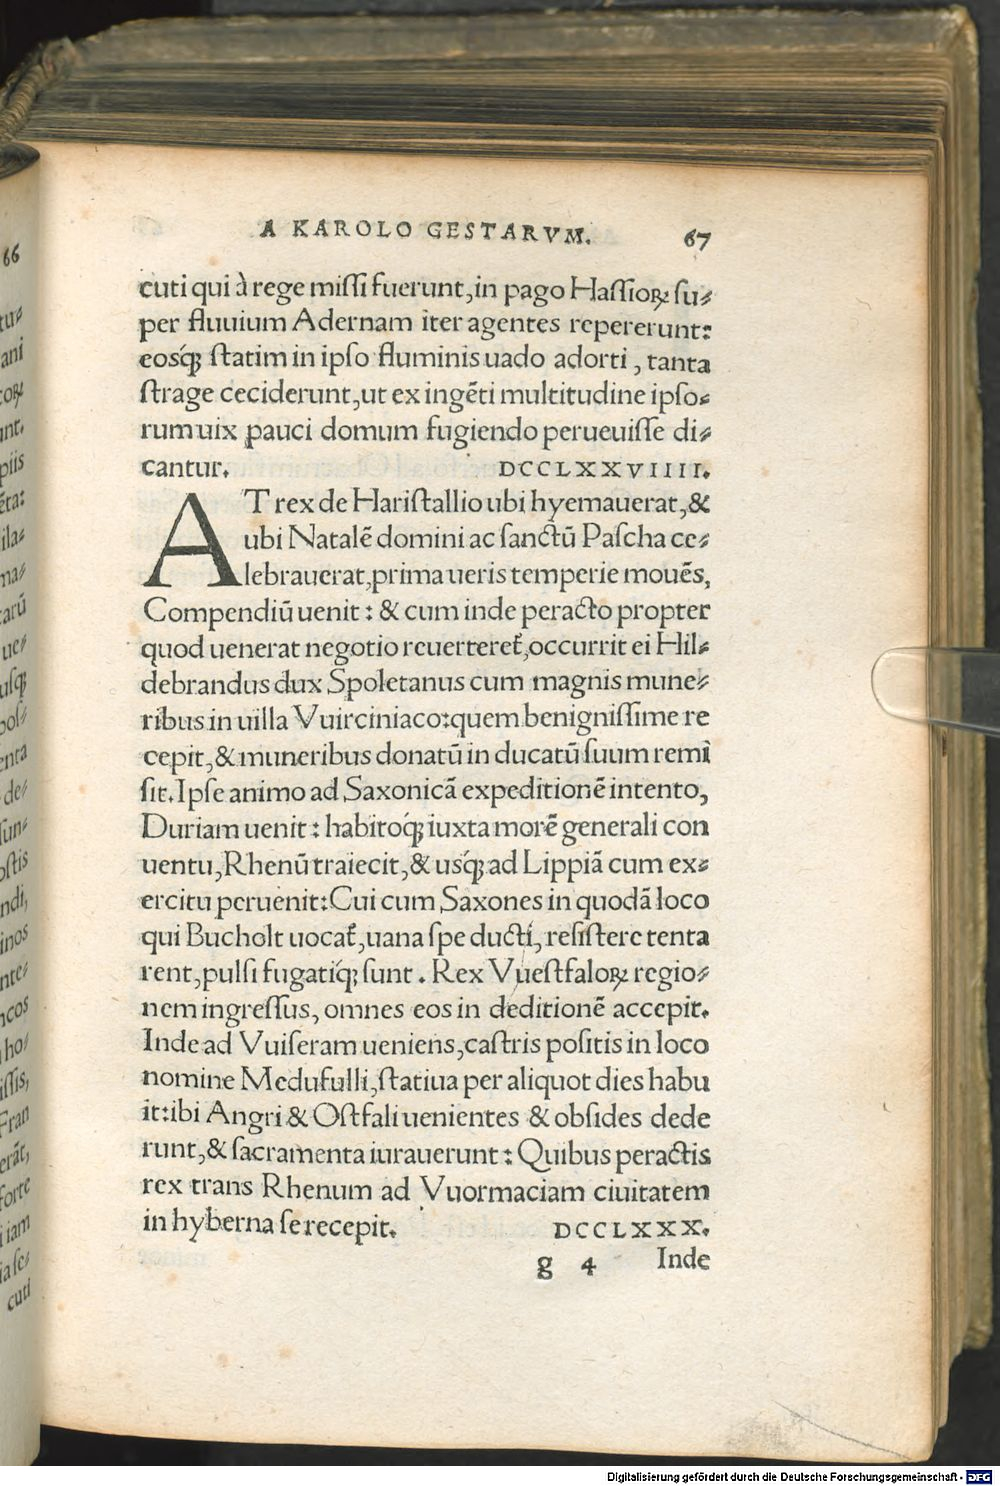 A KAROLO GESTARVM. 67
cuti qui à rege miſſi fuerunt,in pago Haſſioꝝ ſu⸗
per fluuium Adernam iter agentes repererunt:
eosq́ꝫ ſtatim in ipſo fluminis uado adorti, tanta
ſtrage ceciderunt,ut ex ingẽti multitudine ipſo⸗
rum uix pauci domum fugiendo perueuiſſe di⸗
cantur. DCCLXXVIIII.
AT rex de Hariſtallio ubi hyemauerat,&
ubi Natalẽ domini ac ſanctũ Paſcha ce⸗
lebrauerat,prima ueris temperie mouẽs,
Compendiũ uenit: & cum inde peracto propter
quod uenerat negotio reuerteret̃,occurrit ei Hil⸗
debrandus dux Spoletanus cum magnis mune⸗
ribus in uilla Vuirciniaco:quem benigniſſime re
cepit,& muneribus donatũ in ducatũ ſuum remi
ſit.Ipſe animo ad Saxonicã expeditionẽ intento,
Duriam uenit: habitoq́ꝫ iuxta morẽ generali con
uentu,Rhenũ traiecit,& uſq́ꝫ ad Lippiã cum ex⸗
ercitu peruenit:Cui cum Saxones in quodã loco
qui Bucholt uocat̃,uana ſpe ducti, reſiſtere tenta
rent,pulſi fugatiq́ꝫ ſunt. Rex Vueſtfaloꝝ regio⸗
nem ingreſſus, omnes eos in deditionẽ accepit.
Inde ad Vuiſeram ueniens,caſtris poſitis in loco
nomine Medufulli,ſtatiua per aliquot dies habu
it:ibi Angri & Oſtfali uenientes & obſides dede
runt,& ſacramenta iurauerunt: Quibus peractis
rex trans Rhenum ad Vuormaciam ciuitatem
in hyberna ſe recepit. DCCLXXX.
g 4 Inde
66
ani
piis
enta
ndi,
inos
ncos
Fran
forte
iam
cuti
Digitalisierung gefördert durch die Deutsche Forschungsgemeinschaft - DFG